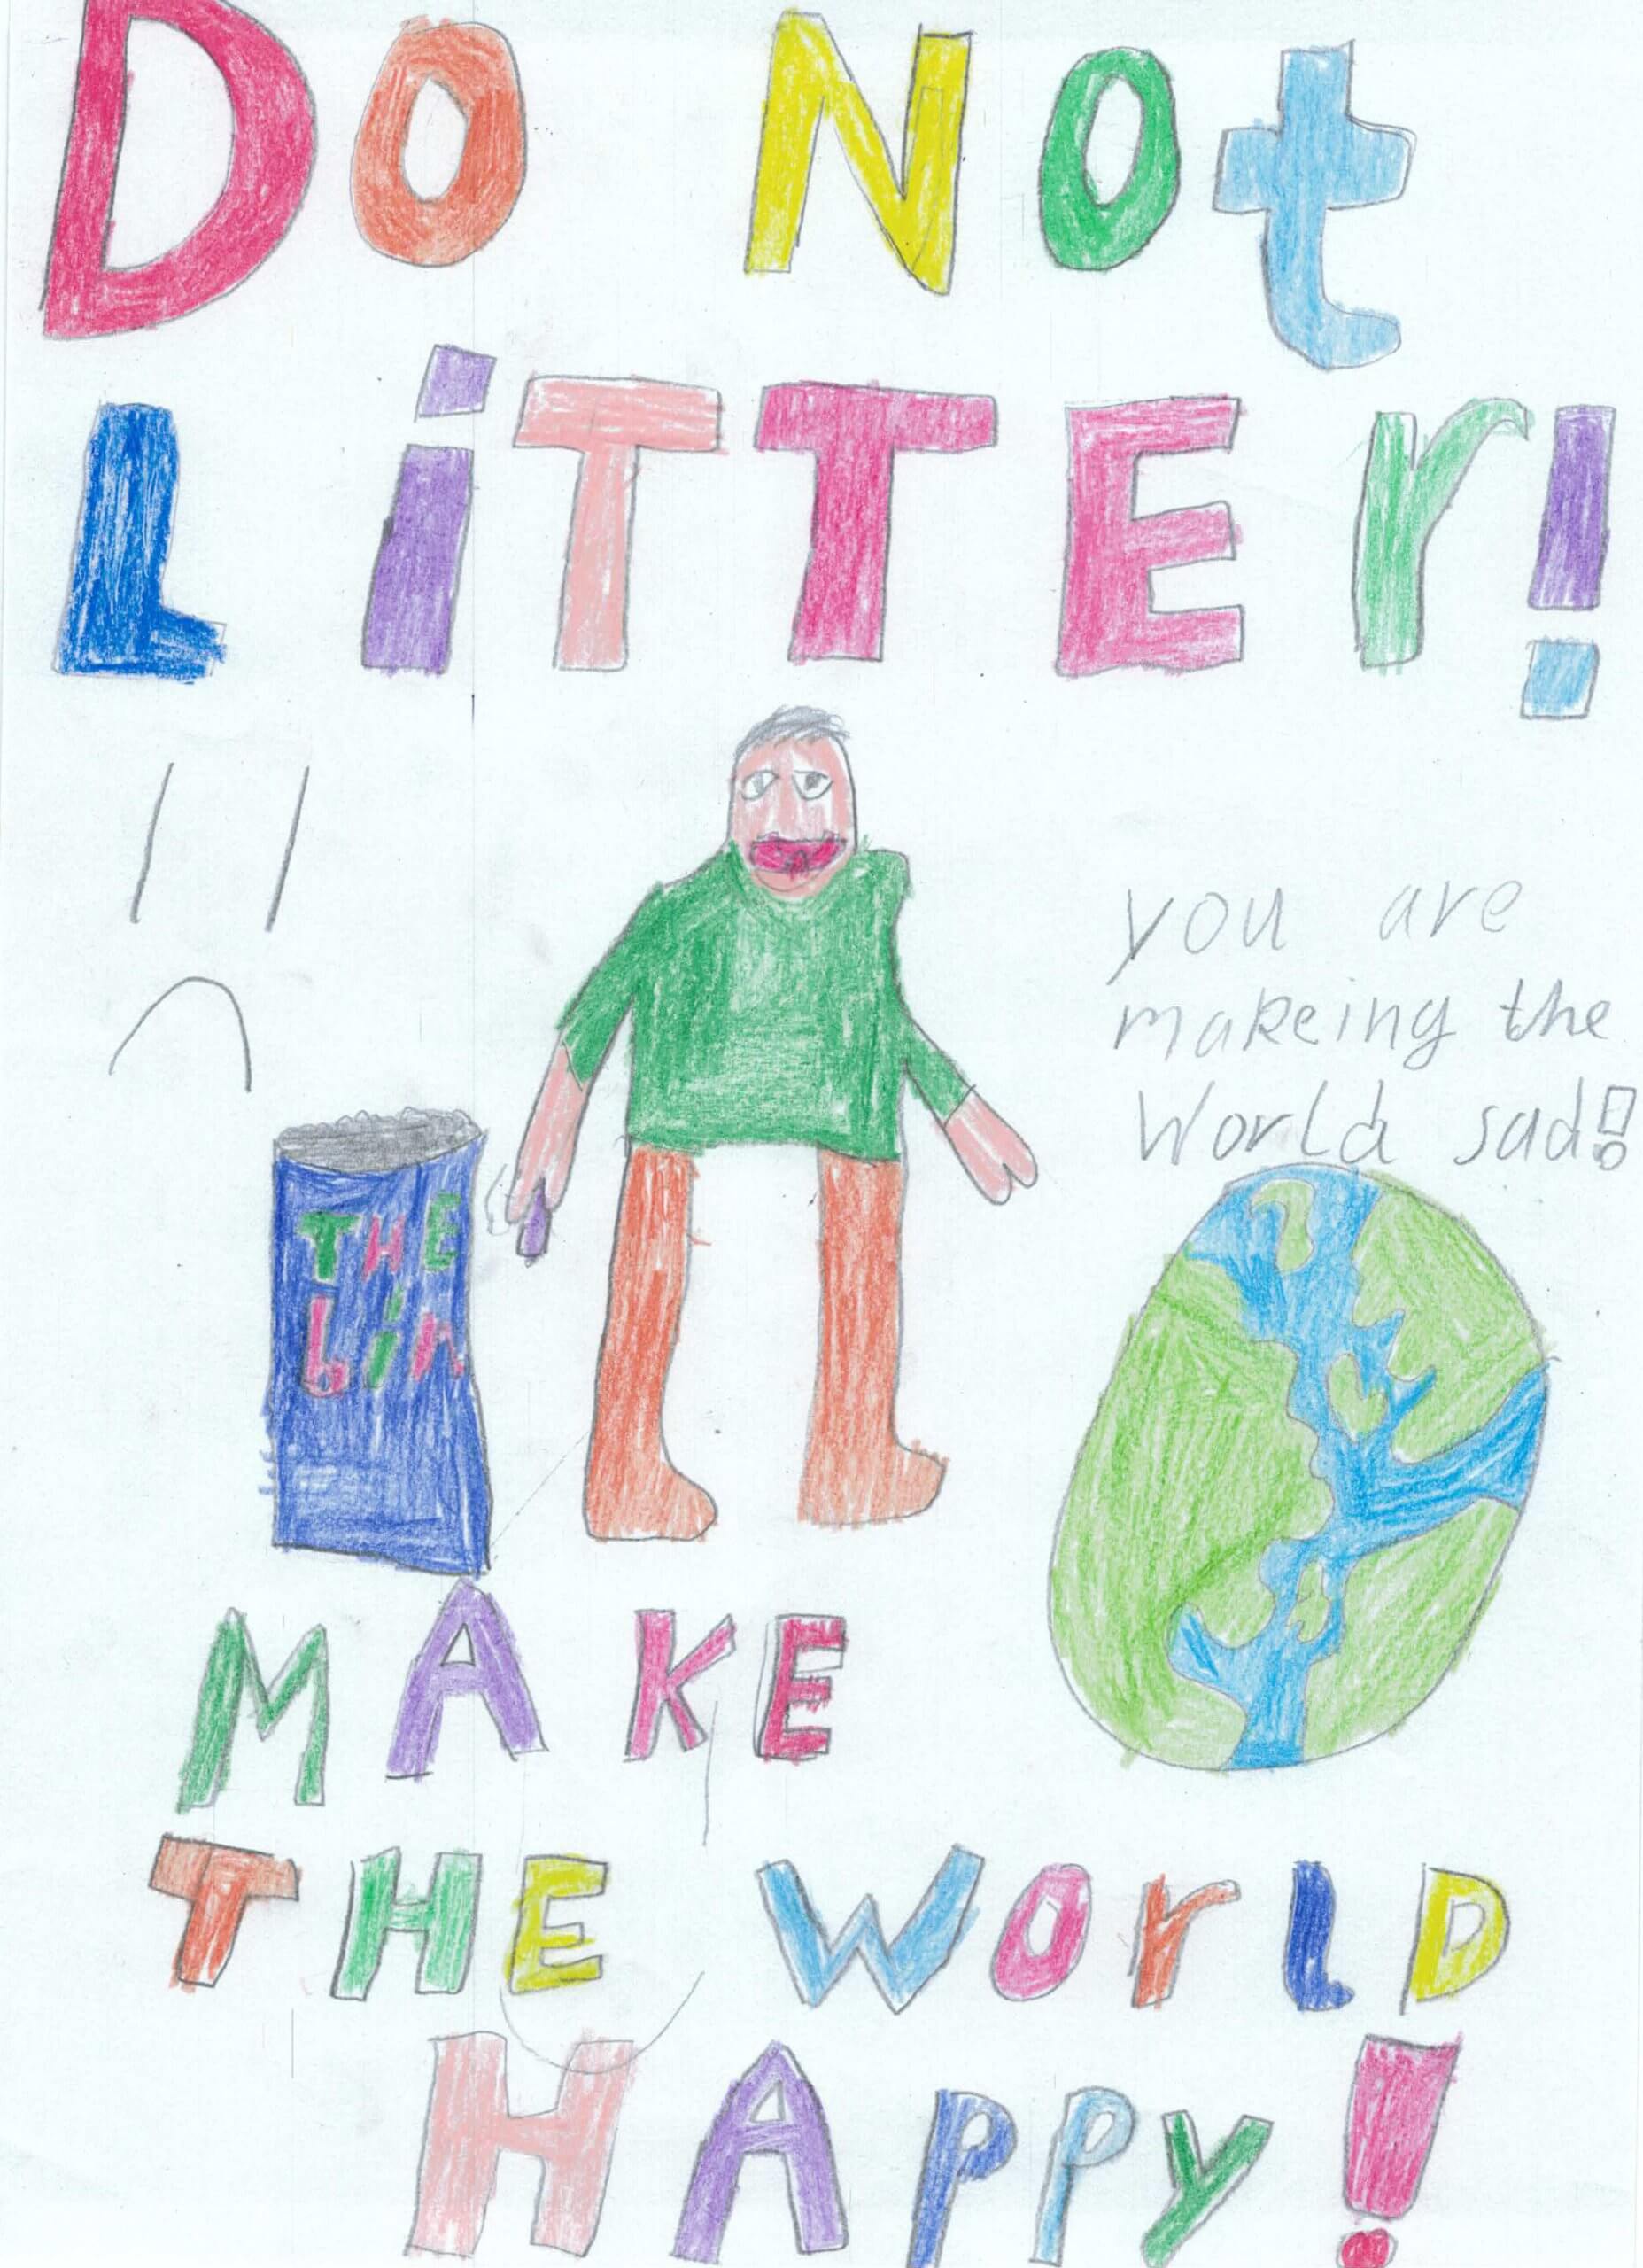 Do Not
LiTTEr!
you are
makeing the
World sad!
THE
bin
MAKE
THE WOrLD
HAppy!